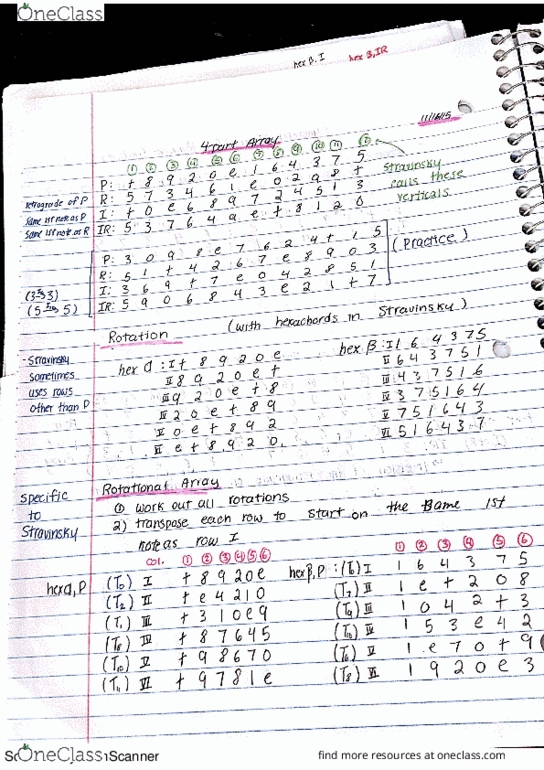 OneClass
hex β, I   hex β, IR
11/16/15
4-part Array
① ② ③ ④ ⑤ ⑥ ⑦ ⑧ ⑨ ⑩ ⑪ ⑫
P: t 8 9 2 0 e 1 6 4 3 7 5
retrograde of P R: 5 7 3 4 6 1 e 0 2 9 8 t
Same 1st note as P I: t 0 e 6 8 9 7 2 4 5 1 3
Same 1st note as R IR: 5 3 7 6 4 a e t 8 1 2 0
Stravinsky
calls these
verticals.
P: 3 0 9 8 e 7 6 2 4 t 1 5
R: 5 1 t 4 2 6 7 e 8 9 0 3
I: 3 6 9 t 7 e 0 4 2 8 5 1
IR: 5 9 0 6 8 4 3 e 2 1 t 7
(Practice)
Rotation (with hexachords in Stravinsky)
- Stravinsky
sometimes
uses rows
other than P
hex α: I t 8 9 2 0 e
II 8 9 2 0 e t
III 9 2 0 e t 8
IV 2 0 e t 8 9
V 0 e t 8 9 2
VI e t 8 9 2 0
hex β: I 1 6 4 3 7 5
II 6 4 3 7 5 1
III 4 3 7 5 1 6
IV 3 7 5 1 6 4
V 7 5 1 6 4 3
VI 5 1 6 4 3 7
specific
to
Stravinsky
Rotational Array
① work out all rotations
2) transpose each row to start on the same 1st
note as row I
col. ① ② ③ ④ ⑤ ⑥
hex α, P (T₀) I t 8 9 2 0 e
(T₂) II t e 4 2 1 0
(T₁) III t 3 1 0 e 9
(T₈) IV t 8 7 6 4 5
(T₁₀) V t 9 8 6 7 0
(T₁₁) VI t 9 7 8 1 e
① ② ③ ④ ⑤ ⑥
hex β, P: (T₀) I 1 6 4 3 7 5
(T₇) II 1 e t 2 0 8
(T₉) III 1 0 4 2 t 3
(T₁₀) IV 1 5 3 e 4 2
(T₆) V 1 e 7 0 t 9
(T₈) VI 1 9 2 0 e 3
OneClass
Scanner
find more resources at oneclass.com